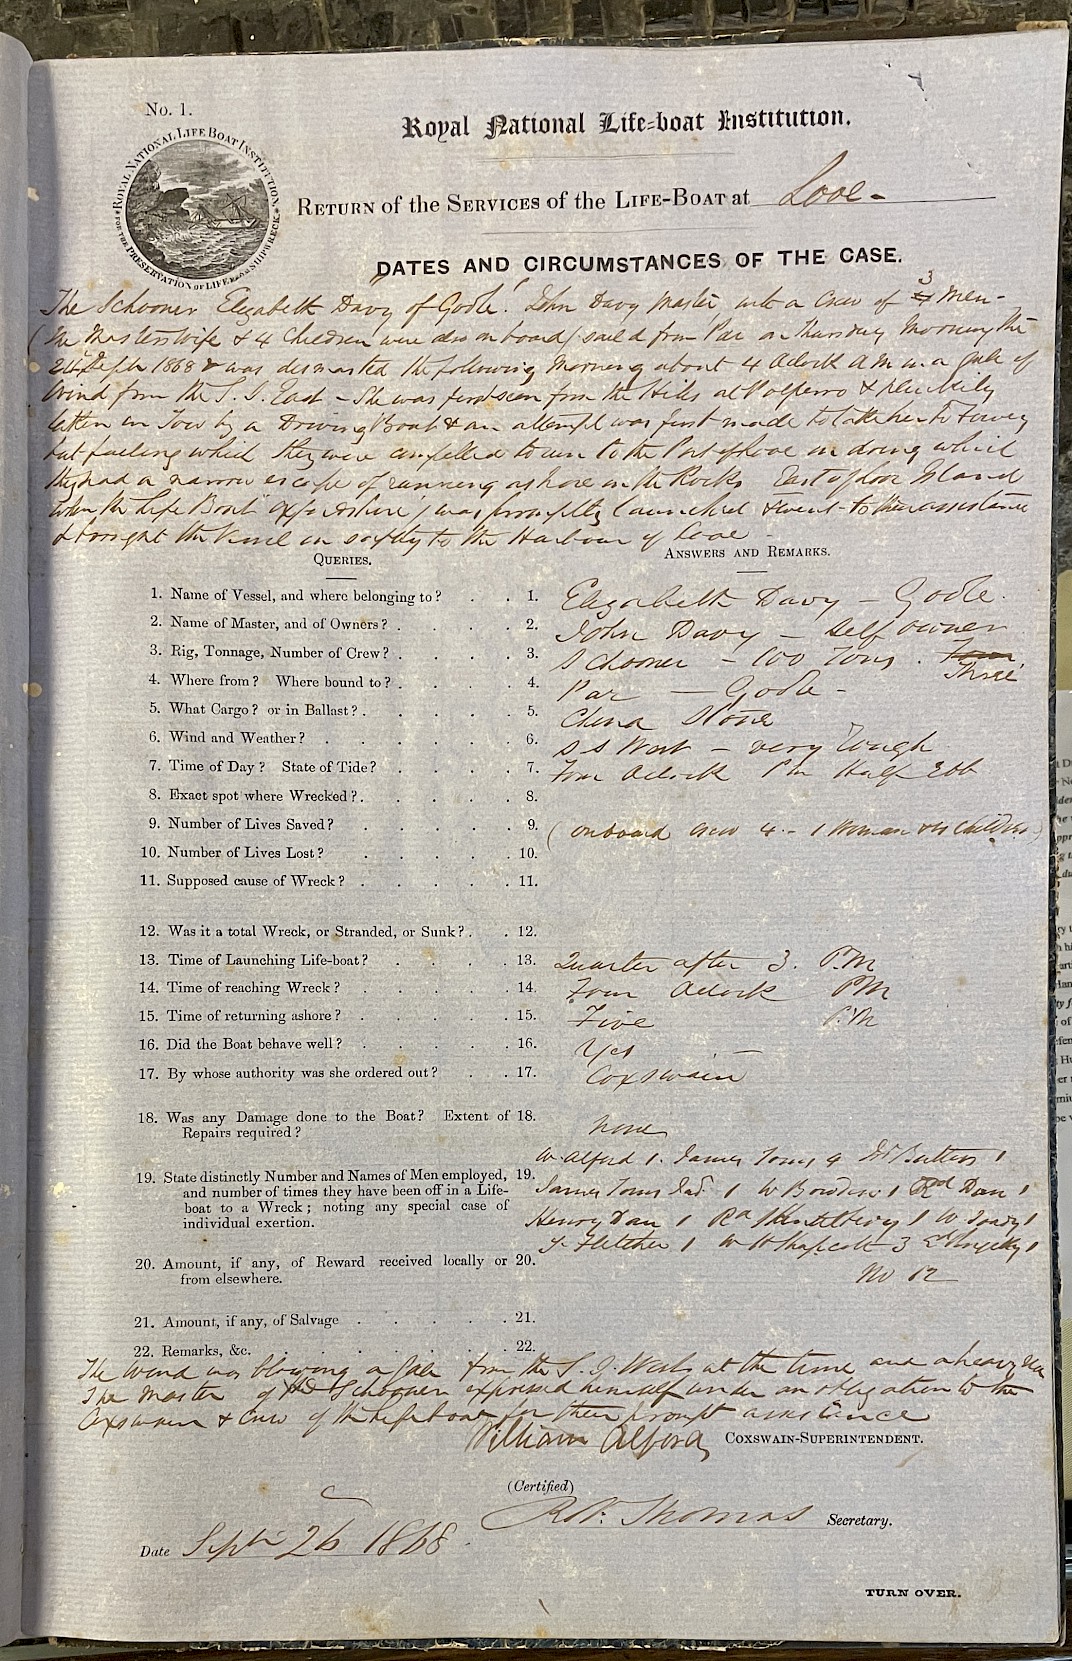 No. 1.
ROYAL NATIONAL LIFE BOAT INSTITUTION,
FOR THE PRESERVATION OF LIFE FROM SHIPWRECK
Royal National Life-boat Institution.
RETURN of the SERVICES of the LIFE-BOAT at Looe -
DATES AND CIRCUMSTANCES OF THE CASE.
The Schooner "Elizabeth Davy of Goole" John Davy Master, with a Crew of 3 Men -
(the Masters wife & 4 Children were also onboard) sailed from Par on Thursday Morning the
24th Septr 1868 & was dismasted the following Morning about 4 Oclock AM in a Gale of
Wind from the S. S. East - She was first seen from the Hills at Polperro &
taken in Tow by a Driving Boat & an attempt was first made to take her to Fowey
but failing which they were compelled to run to the Port of Looe in doing which
they had a narrow escape of running ashore on the Rocks East of Looe Island
when the Life Boat "Oxfordshire" was promptly launched & went to their assistance
& brought the Vessel in safety to the Harbour of Looe -
QUERIES. ANSWERS AND REMARKS.
1. Name of Vessel, and where belonging to? 1. Elizabeth Davy - Goole.
2. Name of Master, and of Owners? 2. John Davy - Self owner
3. Rig, Tonnage, Number of Crew? 3. Schooner - 100 Tons. Four Three
4. Where from? Where bound to? 4. Par - Goole -
5. What Cargo? or in Ballast? 5. China Stone
6. Wind and Weather? 6. S S West - very Rough
7. Time of Day? State of Tide? 7. Four Oclock Pm Half Ebb
8. Exact spot where Wrecked? 8.
9. Number of Lives Saved? 9. (onboard crew 4 - 1 Woman & 4 Children)
10. Number of Lives Lost? 10.
11. Supposed cause of Wreck? 11.
12. Was it a total Wreck, or Stranded, or Sunk? 12.
13. Time of Launching Life-boat? 13. Quarter after 3. P.M
14. Time of reaching Wreck? 14. Four Oclock PM
15. Time of returning ashore? 15. Five P.M
16. Did the Boat behave well? 16. Yes
17. By whose authority was she ordered out? 17. Coxswain
18. Was any Damage done to the Boat? Extent of 18. none
Repairs required?
W. Alford 1. James Toms 4 Butters 1
19. State distinctly Number and Names of Men employed, 19.
and number of times they have been off in a Life-
boat to a Wreck; noting any special case of
individual exertion.
James Toms Jnr 1 W Bowden 1 Rd Dan 1
Henry Dan 1 Rd 1 W 1
T. Fletcher 1 W H Shapcott 3 1
20. Amount, if any, of Reward received locally or 20.
from elsewhere.
No 12
21. Amount, if any, of Salvage 21.
22. Remarks, &c. 22.
The Wind was blowing a Gale from the S. S. West at the time and a heavy Sea
The Master of the Schooner expressed himself under an obligation to the
Coxswain & Crew of the Life boat for their prompt assistance
William Alford, COXSWAIN-SUPERINTENDENT.
(Certified)
Robt. Thomas Secretary.
Date Septr 26 1868.
TURN OVER.